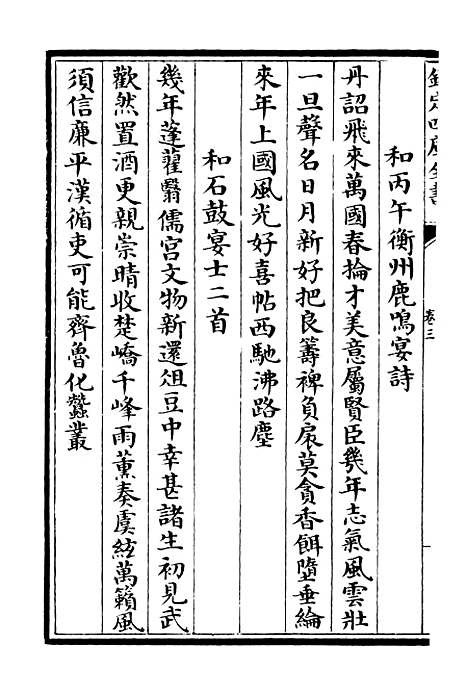 欽定四庫全書
卷三
和丙午衡州鹿鳴宴詩
丹詔飛來萬國春掄才美意屬賢臣幾年志氣風雲壯
一旦聲名日月新好把良籌裨負扆莫貪香餌墮垂綸
來年上國風光好喜帖西馳沸路塵
和石鼓宴士二首
幾年蓬藋翳儒宮文物新還俎豆中幸甚諸生初見武
歡然置酒更親崇晴收楚嶠千峰雨薰奏虞絃萬籟風
須信廉平漢循吏可能齊魯化蠶叢